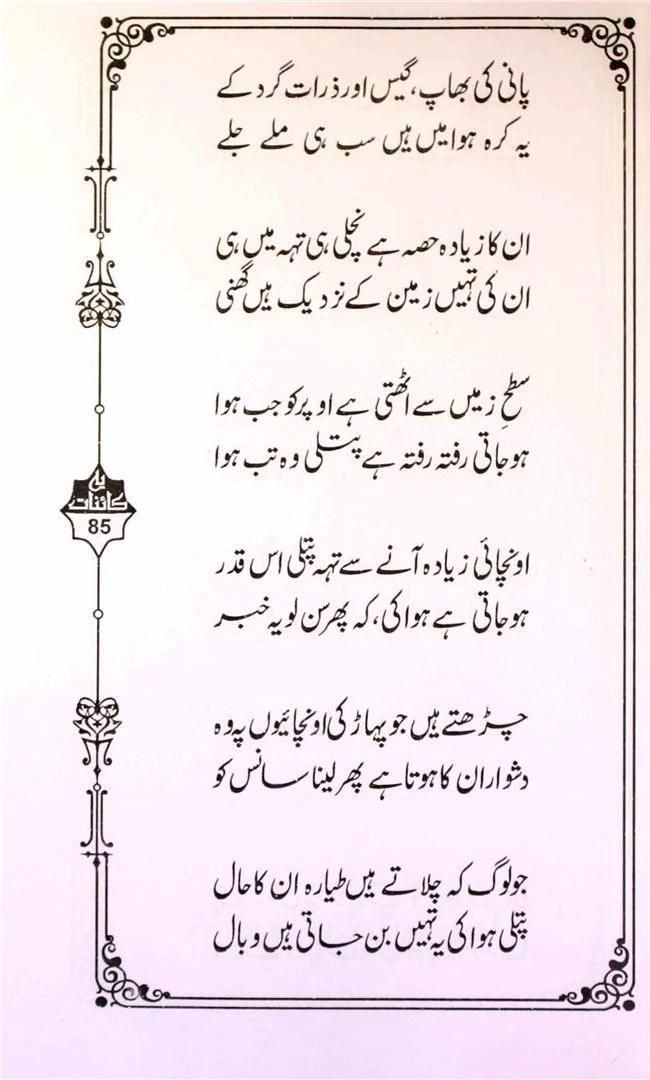 پانی کی بھاپ، گیس اور ذرات گرد کے
یہ کرہ ہوا میں ہیں سب ہی ملے جلے
ان کا زیادہ حصہ ہے نچلی ہی تہہ میں ہی
ان کی تہیں زمین کے نزدیک ہیں گھنی
سطحِ زمیں سے اٹھتی ہے اوپر کو جب ہوا
ہوجاتی رفتہ رفتہ ہے پتلی وہ تب ہوا
یہ
کائنات
85
اونچائی زیادہ آنے سے تہہ پتلی اس قدر
ہوجاتی ہے ہوا کی، کہ پھر سن لو یہ خبر
چڑھتے ہیں جو پہاڑ کی اونچائیوں پہ وہ
دشوار ان کا ہوتا ہے پھر لینا سانس کو
جو لوگ کہ چلاتے ہیں طیارہ ان کا حال
پتلی ہوا کی یہ تہیں بن جاتی ہیں وبال